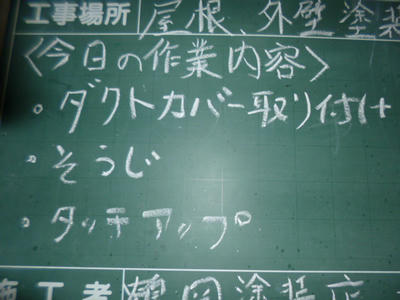 工事場所 屋根、外壁塗装
〈今日の作業内容〉
・ダクトカバー取り付け
・そうじ
・タッチアップ
施工者 塗装店